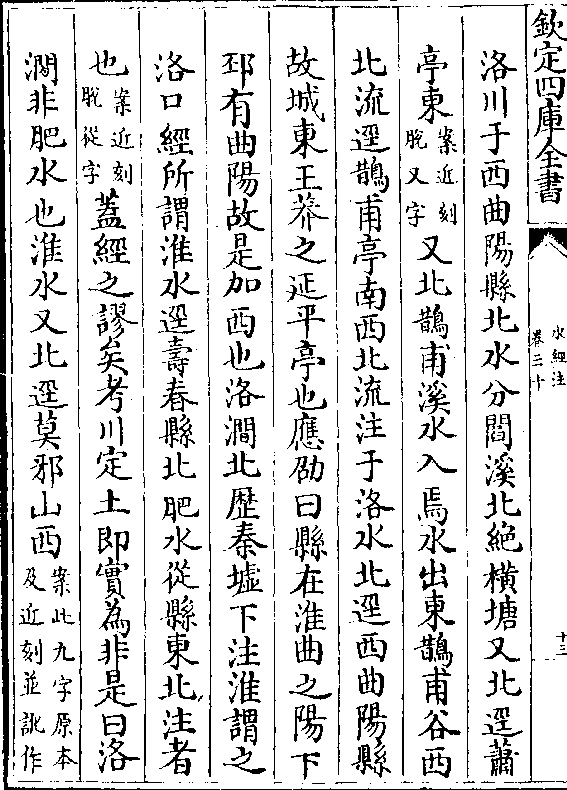 欽定四庫全書
水經注
卷三十
十三
洛川于西曲陽縣北水分閻溪北絶横塘又北逕蕭
亭東案近刻脫又字又北鵲甫溪水入焉水出東鵲甫谷西
北流逕鵲甫亭南西北流注于洛水北逕西曲陽縣
故城東王莽之延平亭也應劭曰縣在淮曲之陽下
邳有曲陽故是加西也洛澗北歷秦墟下注淮謂之
洛口經所謂淮水逕壽春縣北肥水從縣東北注者
也案近刻脫從字蓋經之謬矣考川定土即實為非是曰洛
澗非肥水也淮水又北逕莫邪山西案此九字原本及近刻並訛作